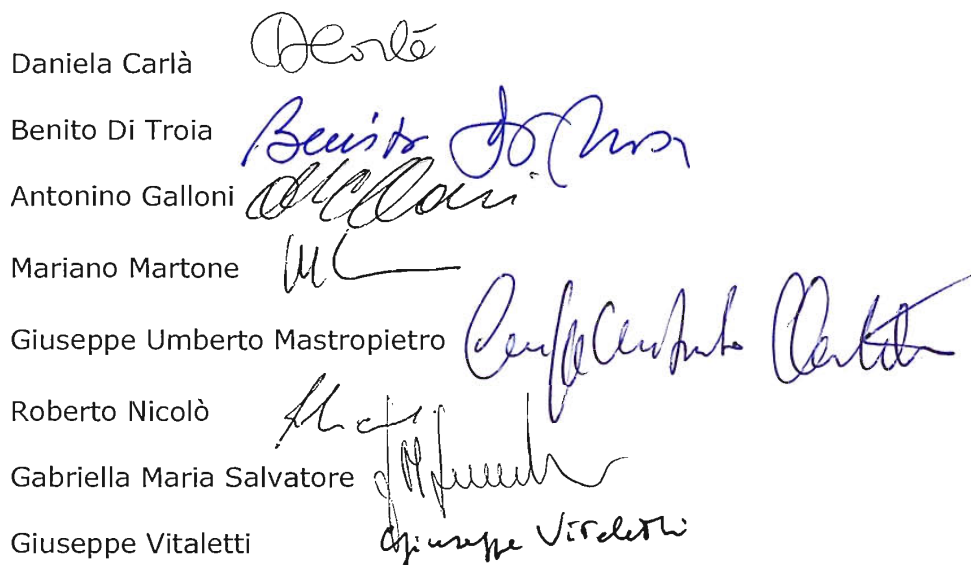 Daniela Carlà DCarlà
Benito Di Troia Benito Di Troia
Antonino Galloni
Mariano Martone
Giuseppe Umberto Mastropietro
Roberto Nicolò
Gabriella Maria Salvatore
Giuseppe Vitaletti Giuseppe Vitaletti